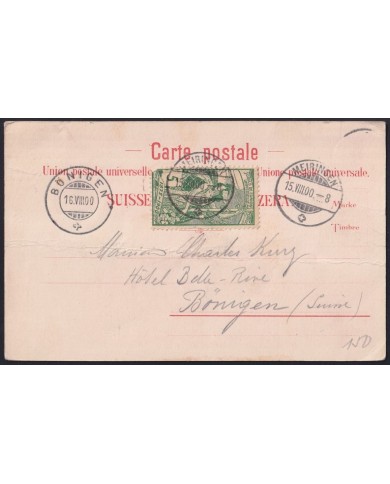 Carte postale
Union postale universelle. Union postale universale.
SUISSE. ZZERA.
Marke
Timbre
BÖNIGEN
16.VIII.00
MEIRINGEN
MEIRINGEN
15.VIII.00.–8
Charles
Hôtel Belle-Rive
Bönigen (Suisse)
150